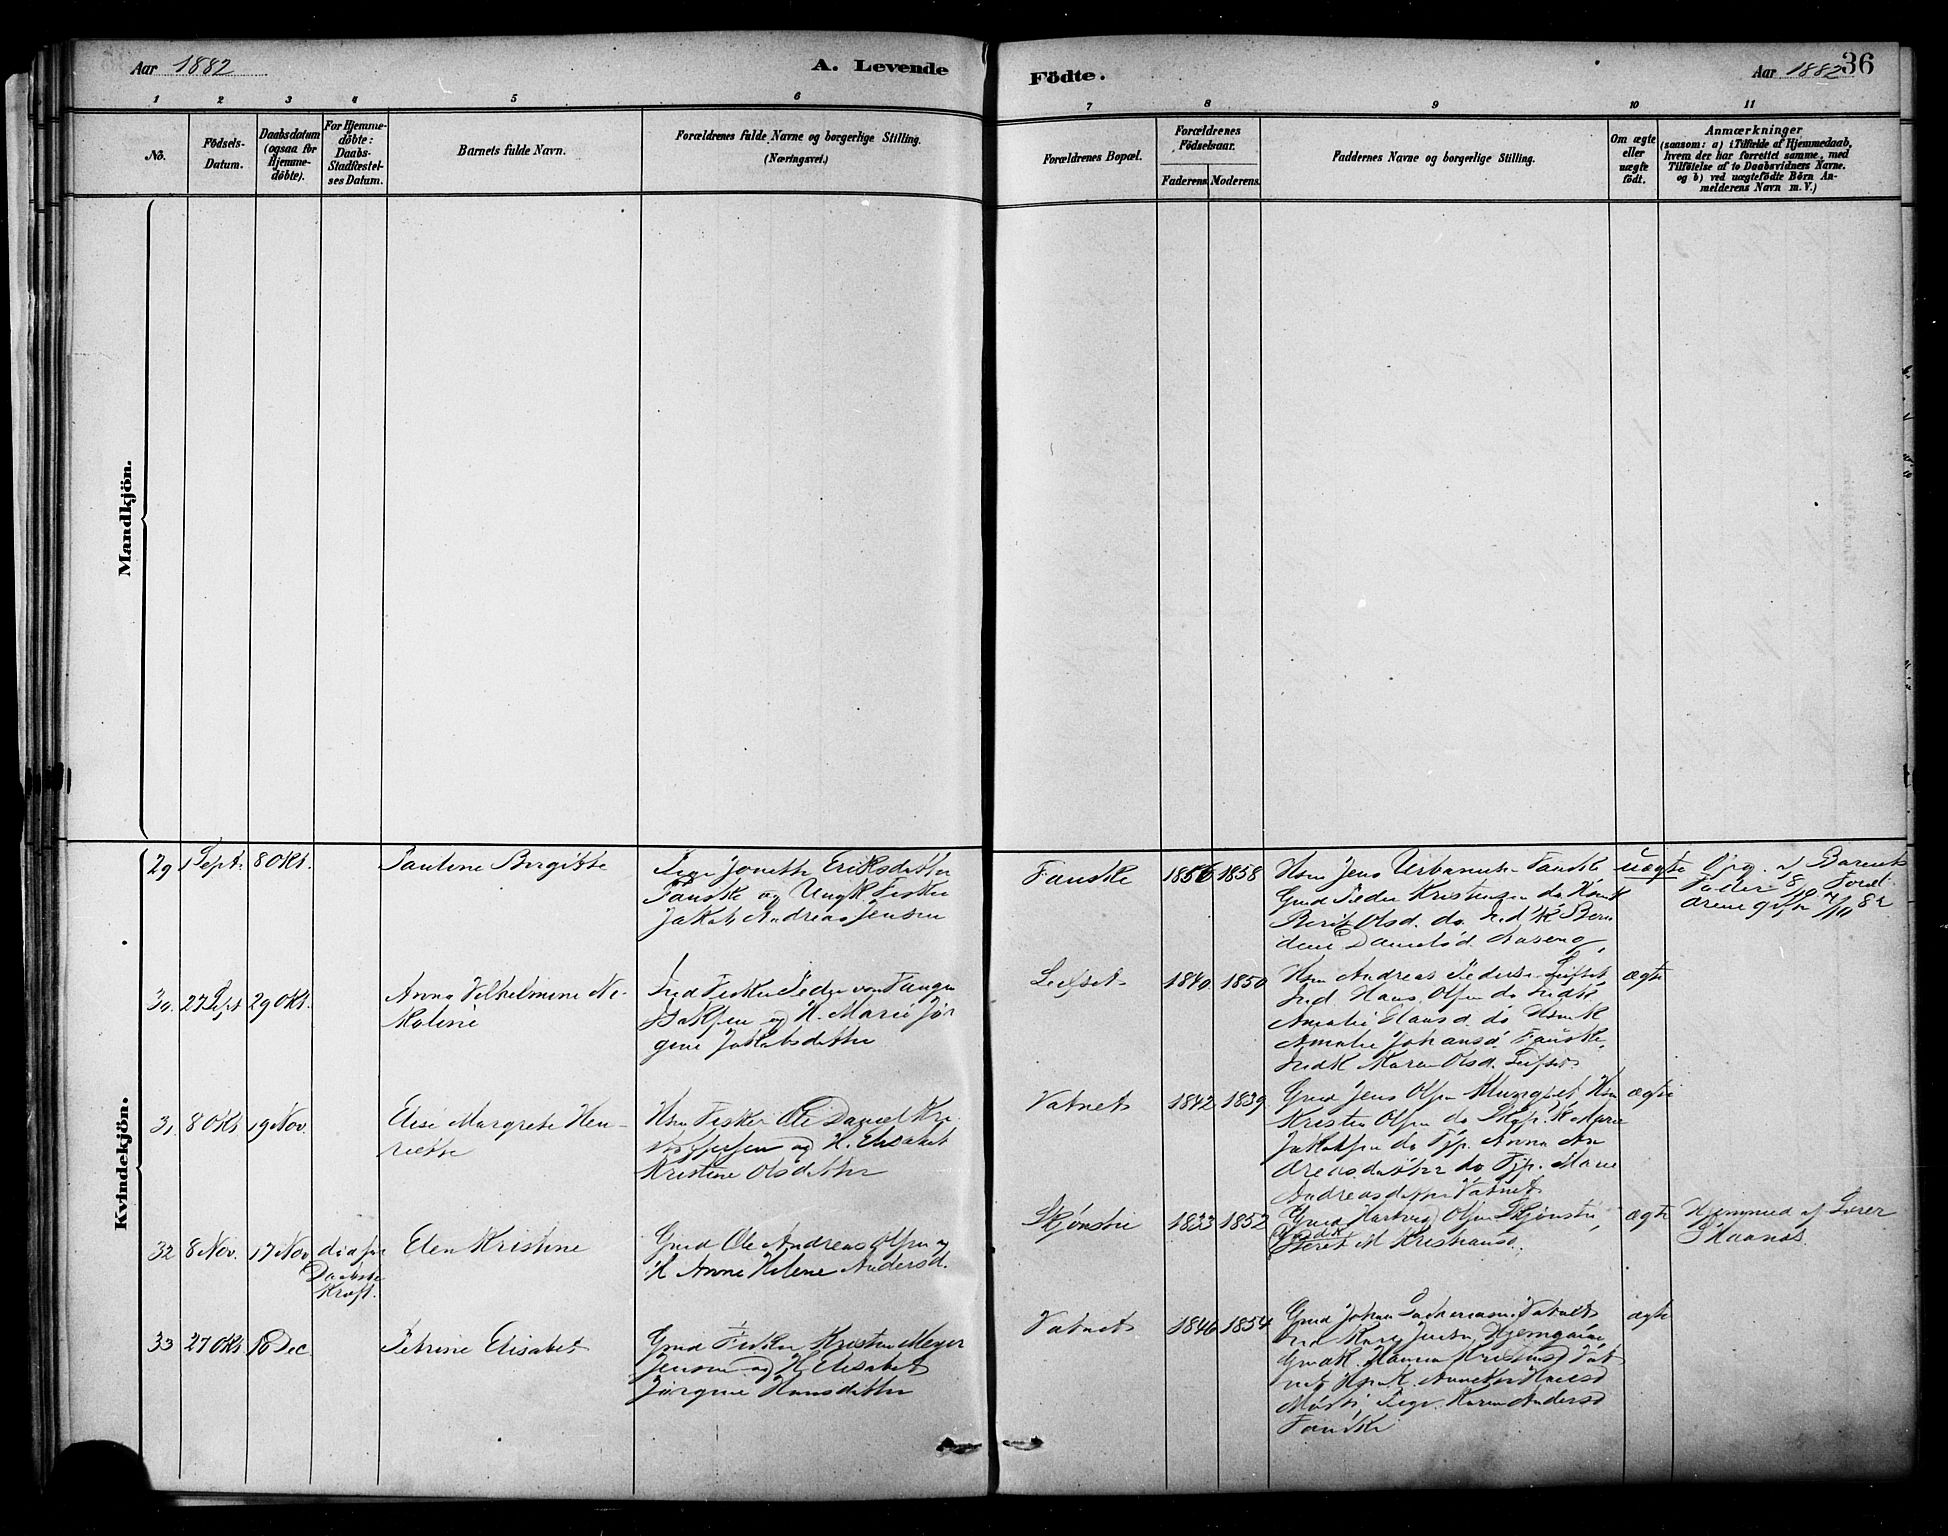 Aar 1882
A. Levende
Födte.
Aar 1882
36
1 2 3 4 5 6 7 8 9 10 11
No.
Födsels-
Datum.
Daabsdatum
(ogsaa for
Hjemme-
döbte).
For Hjemme-
döbte:
Daabs-
Stadfæstel-
ses Datum.
Barnets fulde Navn.
Forældrenes fulde Navne og borgerlige Stilling.
(Næringsvei.)
Forældrenes Bopæl.
Forældrenes
Födselsaar.
Faderens. Moderens.
Faddernes Navne og borgerlige Stilling.
Om ægte
eller
uægte
födt.
Anmærkninger
(saasom: a) i Tilfælde af Hjemmedaab,
hvem der har forrettet samme, med
Tilföielse af to Daabsvidners Navne.
og b) ved uægtefödte Börn An-
melderens Navn m. V.)
Mandkjön.
Kvindekjön.
29 1 Sept. 8 Okt.
Pauline Birgitte
Pige Joneth Eriksdatter
Fauske og Ungk Fisker
Jakob Andreas Jensen
Fauske
1856 1858
Hsm Jens Urbanus Fauske
Gmd Peder Kristensen do
Berit Olsd. do
uægte
Opg. af Barnets
Fader 8/10
30. 27 Sept 29 Okt.
Anna Vilhelmine Ni-
koline
Ind Fisker Peder von Tangen
Isaksen og H. Marie Jør
gine Jakobsdatter
Leifset
1840 1850
Hsm Andreas Peders. Leifset
Ind. Hans Olsen do Indk
Amalie Hansd. do Hsmk
Amalie Johansd Fauske,
Indk Karen Olsd. Leifset
ægte
31. 8 Okt 19 Nov.
Elise Margrete Hen-
riette
Hsm Fisker Ole Daniel Kri
stoffersen og H. Elisabet
Kristine Olsdatter
Vatnet
1842 1839
Gmd Jens Olsen Klungset Hsm
Kristen Olsen do
Jakobsen do Tjp. Anna An
dreasdatter do Tjp. Marie
Andreasdatter Vatnet
ægte
32 8 Nov. 17 Nov
død før
Daabsbe
kræft.
Elen Kristine
Gmd Ole Andreas Olsen og
H Anne Helene Andersd.
Skjønstu
1833 1852
Gmd Hartvig Olsen Skjønstu,
Gmdk
Beret M Kristiansd.
ægte
Hjemmed af Lærer
Skaanes
33 27 Okt. 16 Dec
Petrine Elisabet
Gmd Fisker Kristen Meyer
Jensen og H Elisabet
Jørgine Hansdatter
Vatnet
1846 1854
Gmd Johan Zachariasn. Vatnet
Gmdk. Hanna Kristensd Vat
net
Karen Andersd
Fauske
ægte